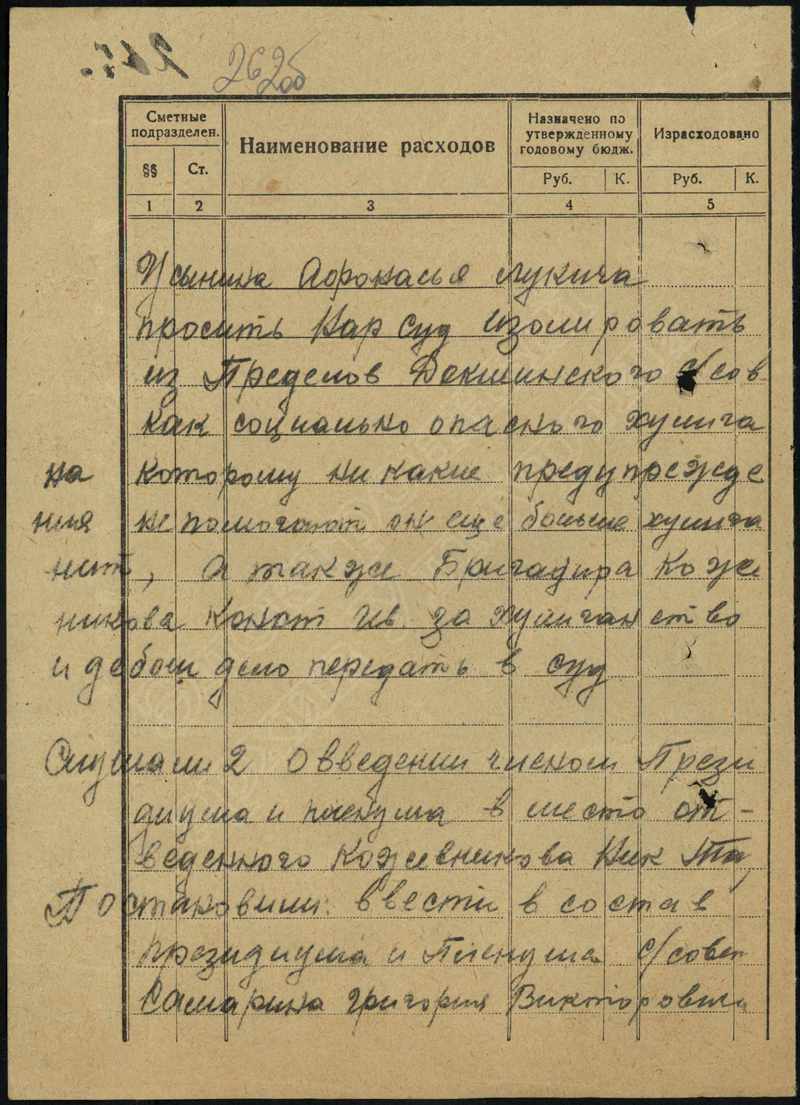 262об
Сметные
подразделен.
Наименование расходов
Назначено по
утвержденному
годовому бюдж.
Израсходовано
§§
Ст.
Руб.
К.
Руб.
К.
1
2
3
4
5
Усынина Афонасья Лукича
просить Нар суд Изолировать
из Пределов Докшинского с/сов
как социально опасного хулига
на которому ни какие предупрежде
ния не помогают он еще больше хулига
нит, А также Бригадира Коже
никова Конст Ив. за хулиганство
и дебош дело передать в суд
Слушали 2 О введении членом Прези
диума и пленума в место от-
веденного Кожевникова Ник
Постановили: Ввести в состав
президиума и Пленума с/совет
Самарина Григория Викторовича